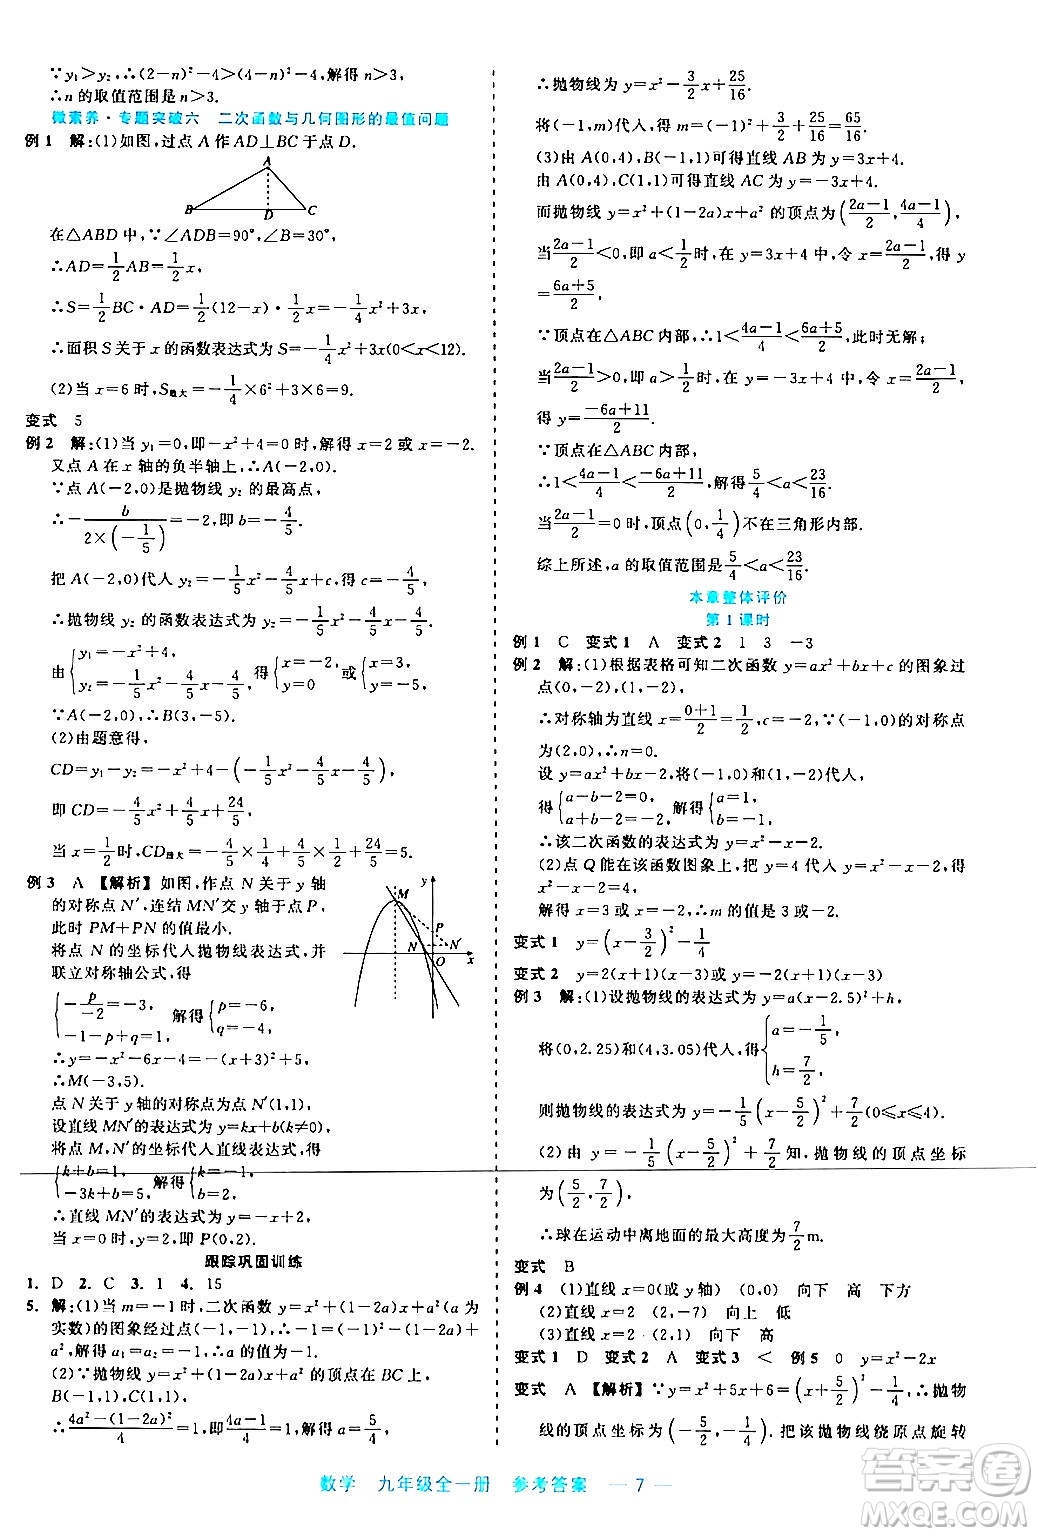 ∵y₁>y₂,∴(2-n)²-4>(4-n)²-4,解得 n>3.
∴n 的取值范围是 n>3.
微素养·专题突破六 二次函数与几何图形的最值问题
例 1 解:(1)如图,过点 A 作 AD⊥BC 于点 D.
A
B D C
在△ABD 中,∵∠ADB=90°,∠B=30°,
∴AD=1/2AB=1/2x,
∴S=1/2BC·AD=1/2(12-x)·1/2x=-1/4x²+3x,
∴面积 S 关于 x 的函数表达式为 S=-1/4x²+3x(0<x<12).
(2)当 x=6 时,S最大=-1/4×6²+3×6=9.
变式 5
例 2 解:(1)当 y₁=0,即-x²+4=0 时,解得 x=2 或 x=-2.
又点 A 在 x 轴的负半轴上,∴A(-2,0).
∵点 A(-2,0)是抛物线 y₂的最高点,
∴-b/(2×(-1/5))=-2,即 b=-4/5.
把 A(-2,0)代入 y₂=-1/5x²-4/5x+c,得 c=-4/5,
∴抛物线 y₂的函数表达式为 y₂=-1/5x²-4/5x-4/5.
由{y₁=-x²+4, y₂=-1/5x²-4/5x-4/5,得{x=-2, y=0或{x=3, y=-5.
∵A(-2,0),∴B(3,-5).
(2)由题意得,
CD=y₁-y₂=-x²+4-(-1/5x²-4/5x-4/5),
即 CD=-4/5x²+4/5x+24/5,
当 x=1/2时,CD最大=-4/5×1/4+4/5×1/2+24/5=5.
例 3 A 【解析】如图,作点 N 关于 y 轴
的对称点 N′,连结 MN′交 y 轴于点 P,
此时 PM+PN 的值最小.
将点 N 的坐标代入抛物线表达式,并
联立对称轴公式,得
{-p/-2=-3, -1-p+q=-1, 解得{p=-6, q=-4.
M y P N N′ O x
∴y=-x²-6x-4=-(x+3)²+5,
∴M(-3,5).
点 N 关于 y 轴的对称点为点 N′(1,1),
设直线 MN′的表达式为 y=kx+b(k≠0),
将点 M,N′的坐标代入直线表达式,得
{k+b=1, -3k+b=5, 解得{k=-1, b=2,
∴直线 MN′的表达式为 y=-x+2,
当 x=0 时,y=2,即 P(0,2).
跟踪巩固训练
1. D 2. C 3. 1 4. 15
5. 解:(1)当 m=-1 时,二次函数 y=x²+(1-2a)x+a²(a 为
实数)的图象经过点(-1,-1),∴-1=1-(1-2a)+
a²,解得 a₁=a₂=-1,∴a 的值为-1.
(2)∵抛物线 y=x²+(1-2a)x+a²的顶点在 BC 上,
B(-1,1),C(1,1),
∴(4a²-(1-2a)²)/4=(4a-1)/4,即(4a-1)/4=1,解得 a=5/4,
∴抛物线为 y=x²-3/2x+25/16.
将(-1,m)代入,得 m=1+3/2+25/16=65/16.
(3)由 A(0,4),B(-1,1)可得直线 AB 为 y=3x+4,
由 A(0,4),C(1,1)可得直线 AC 为 y=-3x+4.
而抛物线 y=x²+(1-2a)x+a²的顶点为((2a-1)/2,(4a-1)/4),
当(2a-1)/2<0,即 a<1/2时,在 y=3x+4 中,令 x=(2a-1)/2,得 y
=(6a+5)/2,
∵顶点在△ABC 内部,∴1<(4a-1)/4<(6a+5)/2,此时无解;
当(2a-1)/2>0,即 a>1/2时,在 y=-3x+4 中,令 x=(2a-1)/2,
得 y=(-6a+11)/2.
∵顶点在△ABC 内部,
∴1<(4a-1)/4<(-6a+11)/2,解得5/4<a<23/16.
当(2a-1)/2=0 时,顶点(0,1/4)不在三角形内部.
综上所述,a 的取值范围是5/4<a<23/16.
本章整体评价
第 1 课时
例 1 C 变式 1 A 变式 2 1 3 -3
例 2 解:(1)根据表格可知二次函数 y=ax²+bx+c 的图象过
点(0,-2),(1,-2),
∴对称轴为直线 x=(0+1)/2=1/2,c=-2,∵(-1,0)的对称点
为(2,0),∴n=0.
设 y=ax²+bx-2,将(-1,0)和(1,-2)代入,
得{a-b-2=0, a+b-2=-2, 解得{a=1, b=-1,
∴该二次函数的表达式为 y=x²-x-2.
(2)点 Q 能在该函数图象上,把 y=4 代入表达式,得
x²-x-2=4,
解得 x=3 或 x=-2,∴m 的值是 3 或-2.
变式 1 y=(x-3/2)²-1/4
变式 2 y=2(x+1)(x-3)或 y=-2(x+1)(x-3)
例 3 解:(1)设抛物线的表达式为 y=a(x-2.5)²+h,
将(0,2.25)和(4,3.05)代入,得{a=-1/5, h=7/2,
则抛物线的表达式为 y=-1/5(x-5/2)²+7/2(0≤x≤4).
(2)由 y=-1/5(x-5/2)²+7/2,得抛物线的顶点坐标
为(5/2,7/2),
∴球在运动中离地面的最大高度为7/2m.
变式 B
例 4 (1)直线 x=0(或 y 轴) (0,0) 向下 高 下方
(2)直线 x=2 (2,-7) 向上 低
(3)直线 x=2 (2,1) 向下 高
变式 1 D 变式 2 A 变式 3 < 例 5 0 y=x²-2x
变式 A 【解析】∵y=x²+5x+6=(x+5/2)²-1/4,∴抛物
线的顶点坐标为(-5/2,-1/4). 把该抛物线绕原点旋转
数学 九年级全一册 参考答案 — 7 —